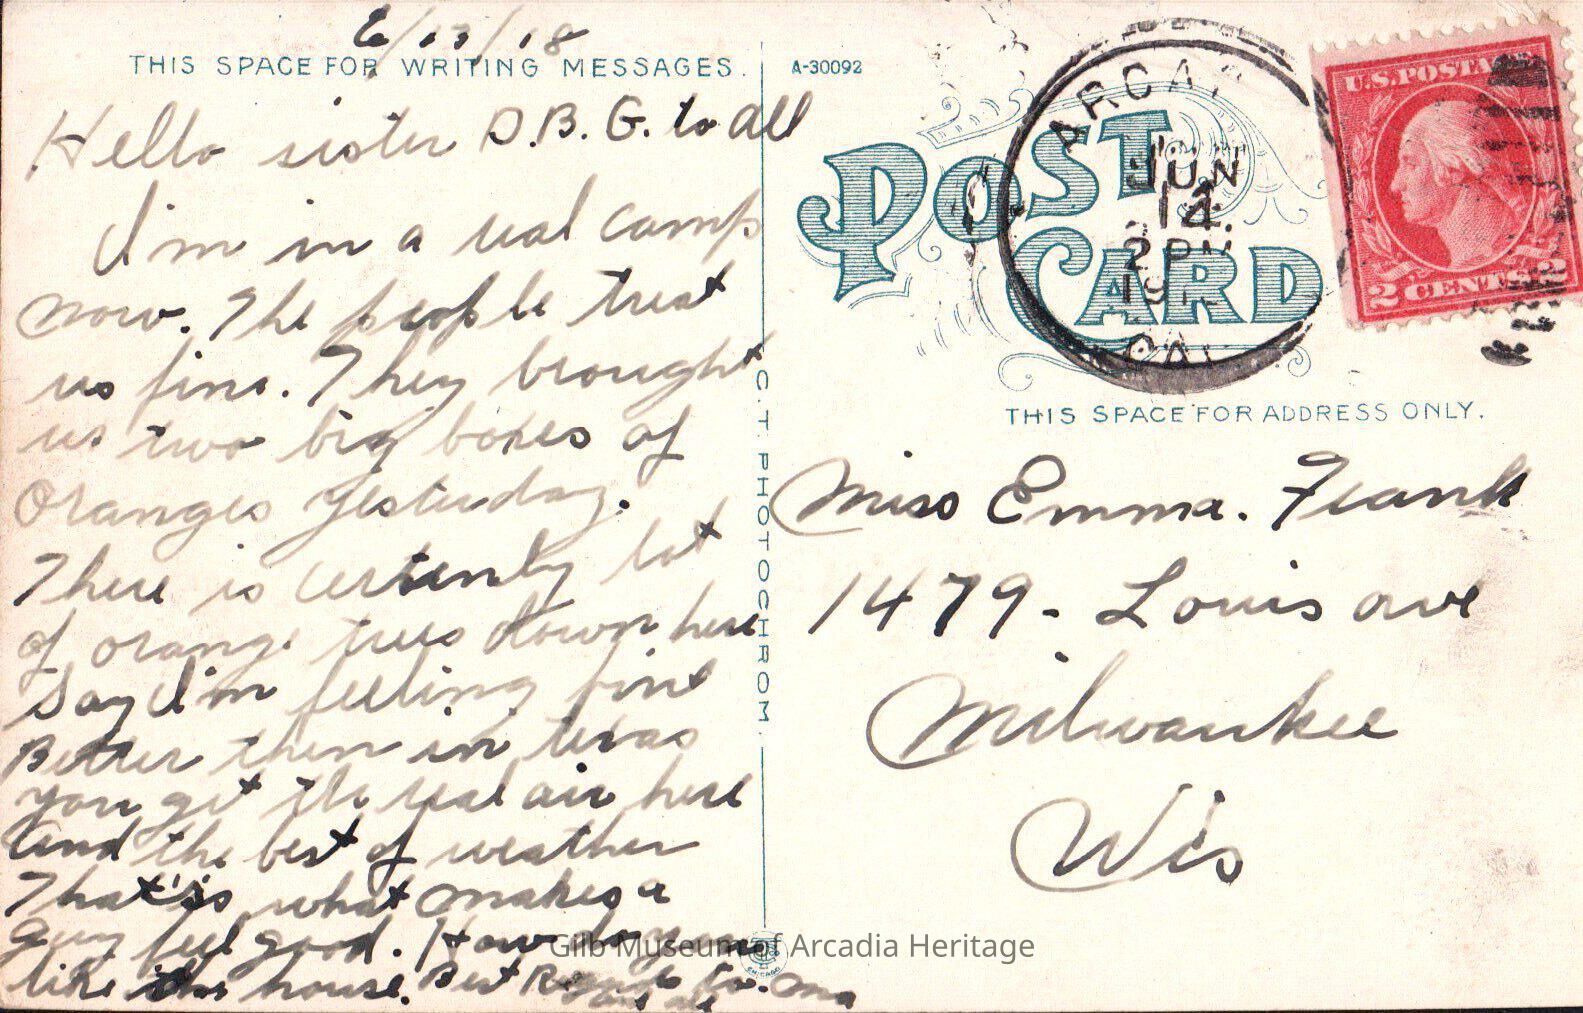 6/13/18
THIS SPACE FOR WRITING MESSAGES.
Hello sister O.B.G. to all
I'm in a real camp
now. The people treat
us fine. They brought
us two big boxes of
oranges yesterday.
There is certenly lot
of orange trees down here
Say I'm feeling fine
Better then in texas
you get the real air here
and the best of weather
That's what makes a
guy feel good. How do you
like this house. Best Regards to. ma
and all
C. T. PHOTOCHROM
CHICAGO
A-30092
POST CARD
ARCA
JUN
14
2 PM
19
CAL
U.S. POSTA
2 CENTS 2
THIS SPACE FOR ADDRESS ONLY.
Miss Emma. Frank
1479- Louis ave
Milwaukee
Wis
Gilb Museum of Arcadia Heritage